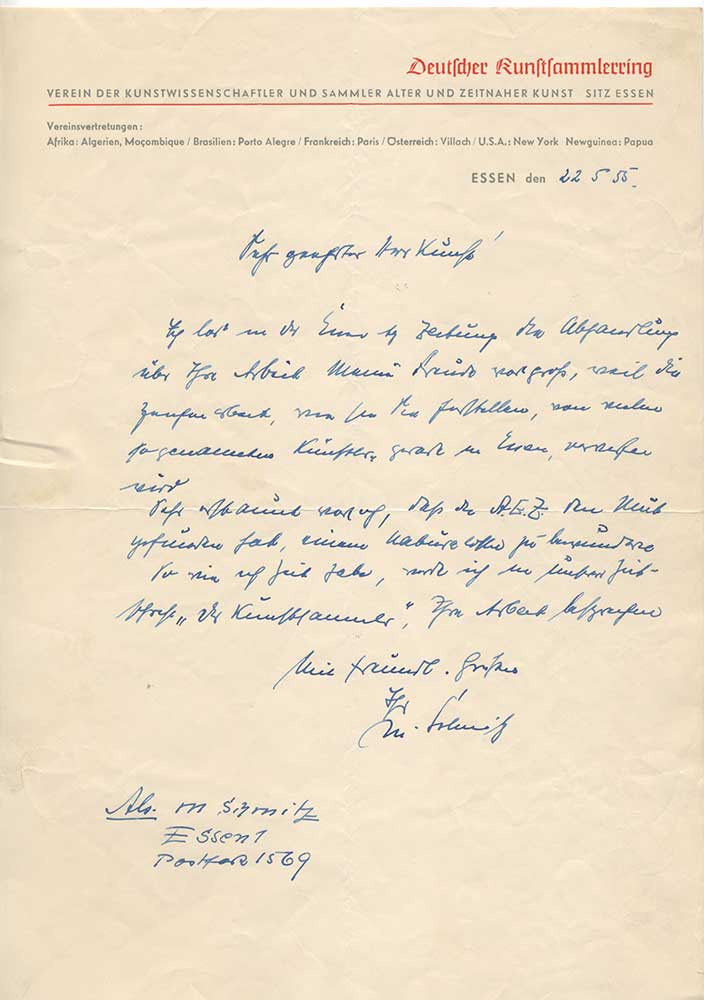 Deutscher Kunstsammlerring
VEREIN DER KUNSTWISSENSCHAFTLER UND SAMMLER ALTER UND ZEITNAHER KUNST SITZ ESSEN
Vereinsvertretungen:
Afrika: Algerien, Moçombique / Brasilien: Porto Alegre / Frankreich: Paris / Österreich: Villach / U.S.A.: New York Newguinea: Papua
ESSEN den 22 5 55.
Sehr geehrter Herr Künst!
Ich las in der Zeitung die Abhandlung
über Ihre Arbeit Meine Freude war groß, weil die
wie sie Sie herstellen, von vielen
sogenannten Künstler, gerade in Essen, verworfen
wird
Sehr erstaunt war ich, daß die A.E.Z. den Mut
gefunden hat, einem zu bewundern
So wie ich Zeit habe, werde ich in unserer Zeit-
schrift „Der Kunstsammler", Ihre Arbeit besprechen
Mit freundl. Grüßen
Ihr
M. Schmitz
Abs. M Schmitz
Essen 1
Postfach 1569